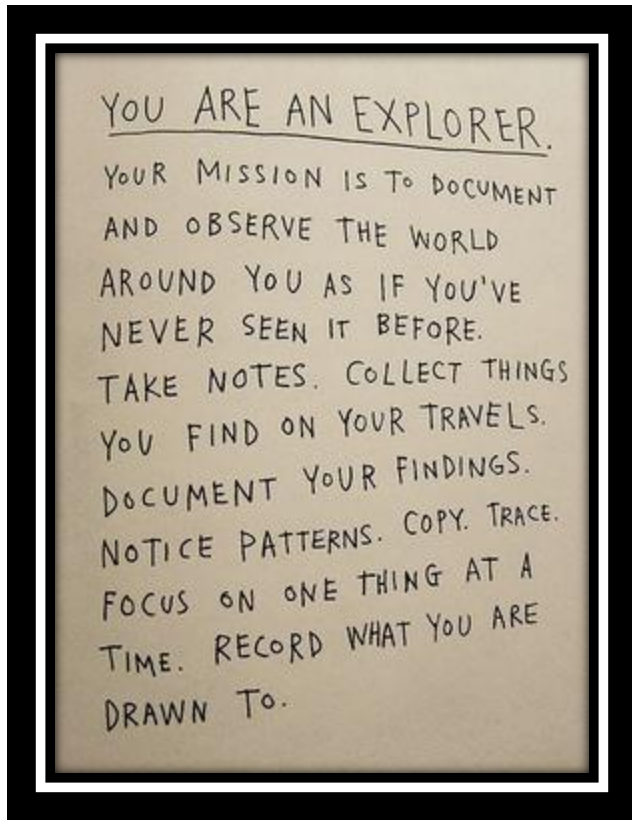 YOU ARE AN EXPLORER.
YOUR MISSION IS TO DOCUMENT
AND OBSERVE THE WORLD
AROUND YOU AS IF YOU'VE
NEVER SEEN IT BEFORE.
TAKE NOTES. COLLECT THINGS
YOU FIND ON YOUR TRAVELS.
DOCUMENT YOUR FINDINGS.
NOTICE PATTERNS. COPY. TRACE.
FOCUS ON ONE THING AT A
TIME. RECORD WHAT YOU ARE
DRAWN TO.